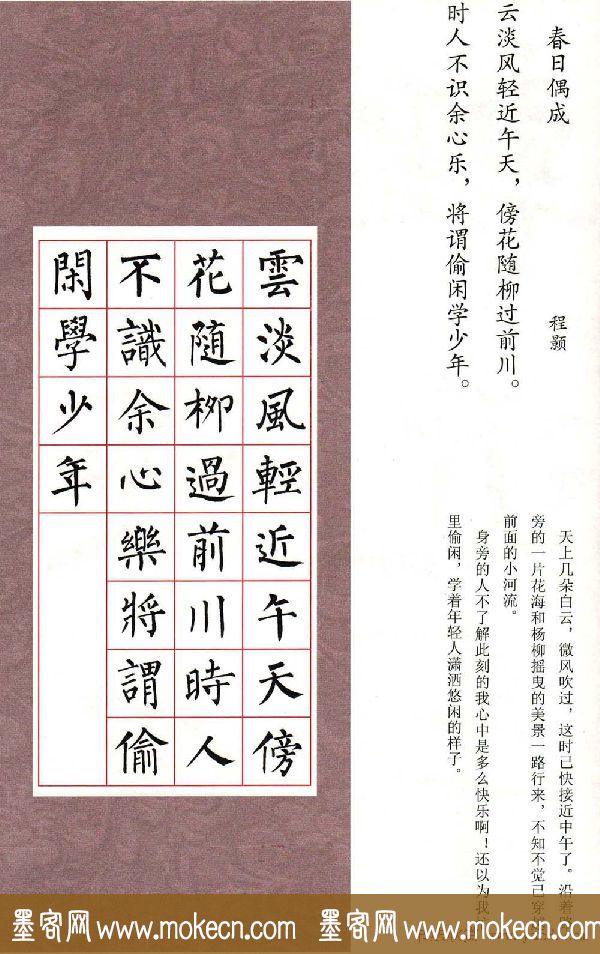 春日偶成 程颢
云淡风轻近午天，傍花随柳过前川。
时人不识余心乐，将谓偷闲学少年。
天上几朵白云，微风吹过，这时已快接近中午了。沿着
旁的一片花海和杨柳摇曳的美景一路行来，不知不觉已穿
前面的小河流。
身旁的人不了解此刻的我心中是多么快乐啊！还以为我
里偷闲，学着年轻人潇洒悠闲的样子。
雲淡風輕近午天傍
花随柳過前川時人
不識余心樂將謂偷
閑學少年
墨客网 www.mokecn.com 墨客网 www.mokecn.com